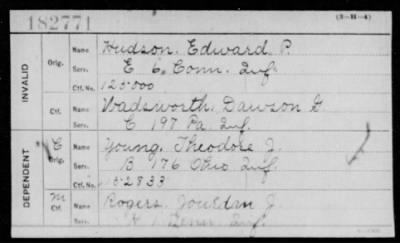 182771
(3-H-4)
INVALID
Orig.
Name Hudson, Edward P.
Serv. E 6, Conn. Inf.
Ctf. No. 125000
Ctf.
Name Wadsworth, Dawson G
Serv. C 197 Pa. Inf.
DEPENDENT
C
Orig.
Name Young, Theodore J.
Serv. B 176 Ohio Inf.
Ctf. No. 52833
M
Ctf.
Name Rogers, J.
Serv. Inf.